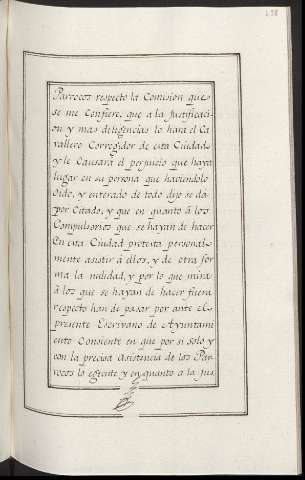 Parrocos respecto la Comision que
se me Confiere, que a la Justificaci
on y mas diligencias lo hara el Ca
vallero Corregidor de esta Ciudad
y le Causará el perjuicio que haya
lugar en su persona que haciendolo
Oido, y enterado de todo dijo se dá
por Citado, y que en quanto á los
Compulsorios que se hayan de hacer
En esta Ciudad protesta personal-
mente asistir á ellos, y de otra for
ma la nulidad, y por lo que mira
á los que se hayan de hacer fuera
respecto han de pasar por ante el
presente Escrivano de Ayuntami
ento Consiente en que por si solo y
con la precisa Asistencia de los Par-
rocos lo egecute y en quanto a la Jus